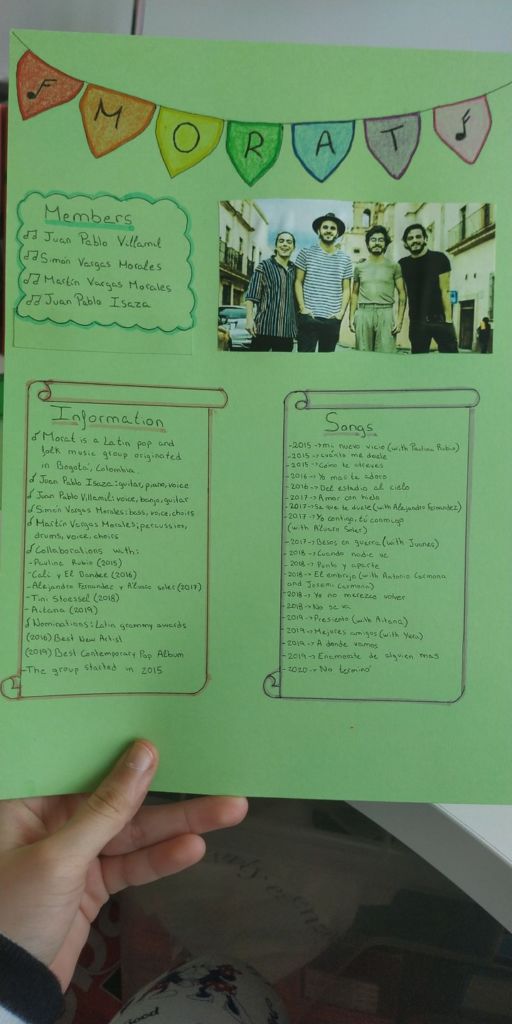 MORAT
Members
Juan Pablo Villamil
Simón Vargas Morales
Martín Vargas Morales
Juan Pablo Isaza
Information
Morat is a Latin pop and
folk music group originated
in Bogotá, Colombia.
Juan Pablo Isaza: guitar, piano, voice
Juan Pablo Villamil: voice, banjo, guitar
Simón Vargas Morales: bass, voice, choirs
Martín Vargas Morales; percussion,
drums, voice, choirs
Collaborations with:
- Paulina Rubio (2015)
- Cali y El Dandee (2016)
- Alejandro Fernandez y Alvaro soler (2017)
- Tini Stoessel (2018)
- Aitana (2019)
Nominations: Latin grammy awards
(2016) Best New Artist
(2019) Best Contemporary Pop Album
- The group started in 2015
Songs
- 2015 → mi nuevo vicio (with Paulina Rubio)
- 2015 → cuánto me duele
- 2015 → Cómo te atreves
- 2016 → Yo mas te adoro
- 2016 → Del estadio al cielo
- 2017 → Amor con hielo
- 2017 → Sé que te duele (with Alejandro Fernandez)
- 2017 → Yo contigo, tú conmigo
(with Alvaro Soler)
- 2017 → Besos en guerra (with Juanes)
- 2018 → Cuando nadie ve
- 2018 → Punto y aparte
- 2018 → El embrujo (with Antonio Carmona
and Josemi Carmona)
- 2018 → Yo no merezco volver
- 2018 → No se va
- 2019 → Presiento (with Aitana)
- 2019 → Mejores amigos (with Vera)
- 2019 → A donde vamos
- 2019 → Enamorate de alguien mas
- 2020 → No terminó